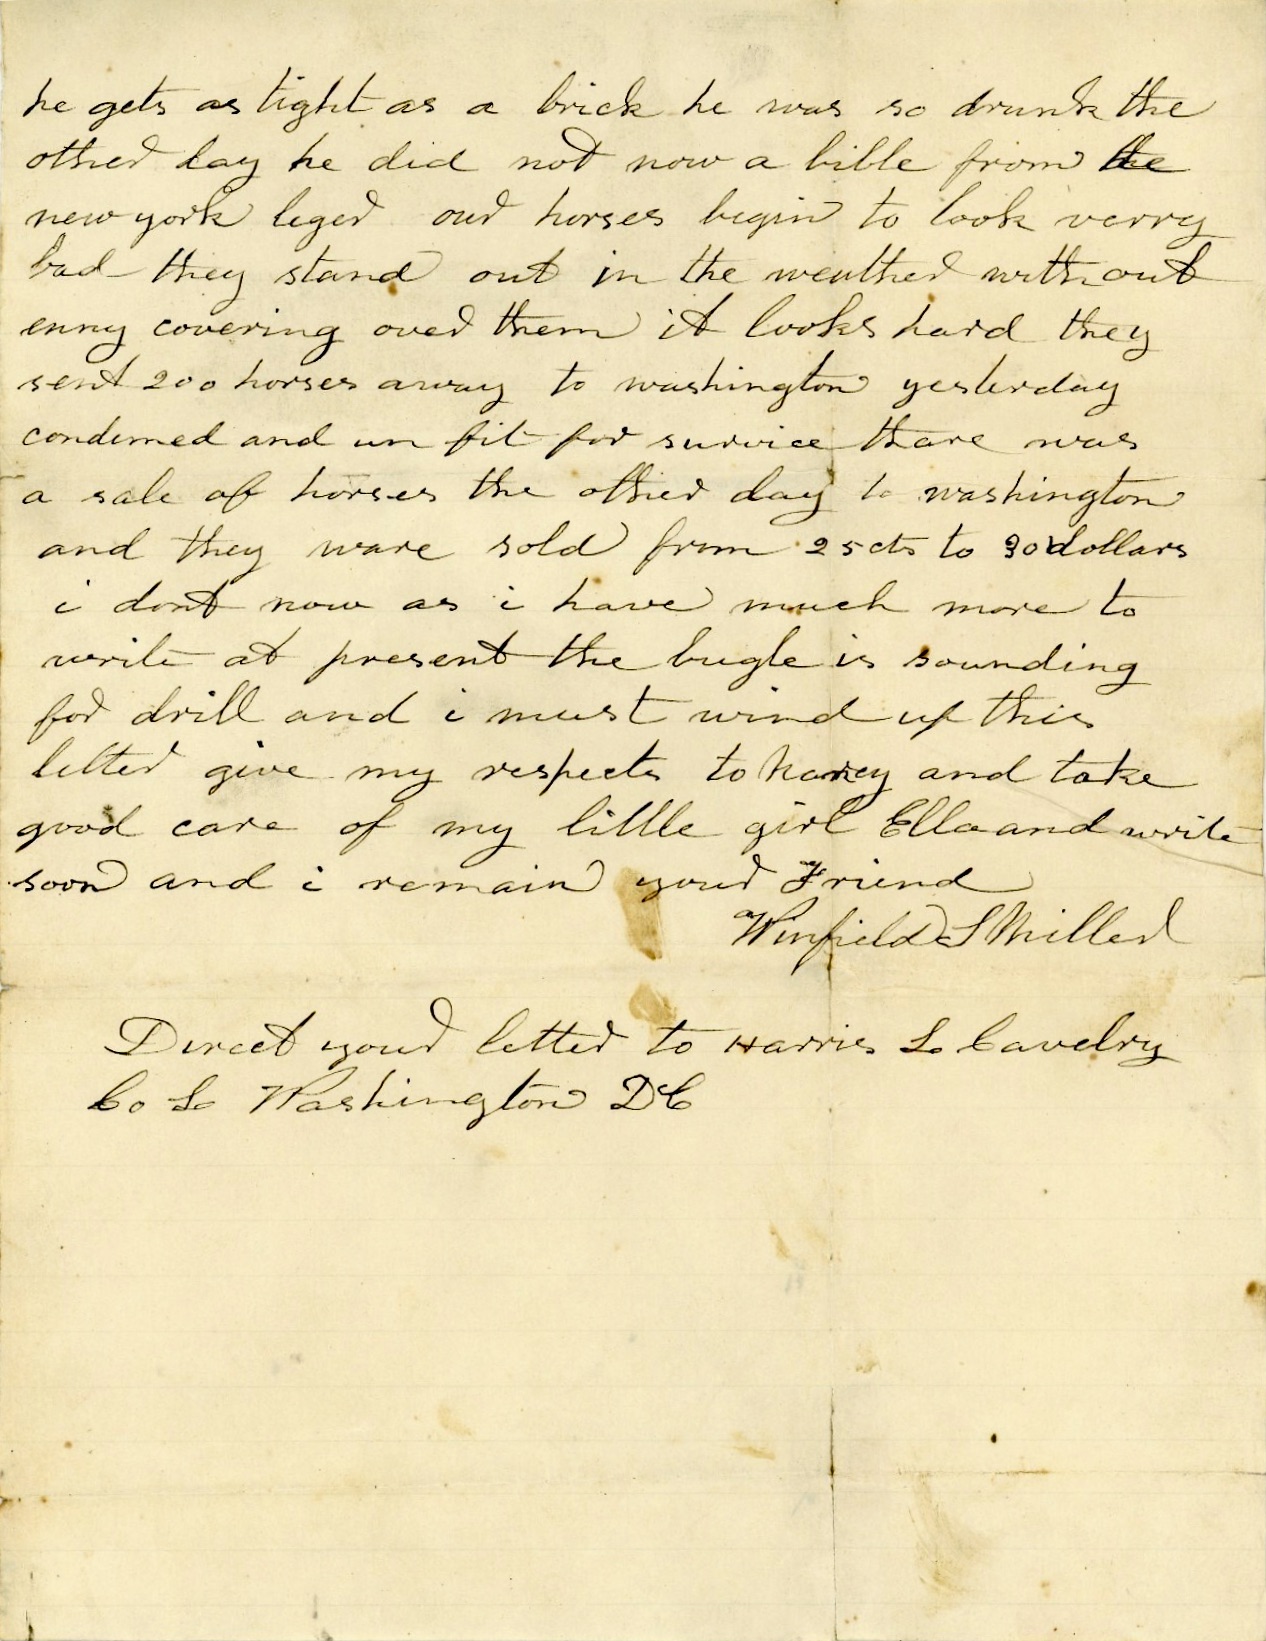 he gets as tight as a brick he was so drunk the
other day he did not now a bible from the
new york leger our horses begin to look verry
bad they stand out in the weather without
enny covering over them it looks hard they
sent 200 horses away to washington yesterday
condemed and un fit for survice thare was
a sale of horses the other day to washington
and they ware sold from 25 cts to 30 dollars
i dont now as i have much more to
write at present the bugle is sounding
for drill and i must wind up this
letter give my respects to and take
good care of my little girl Ella and write
soon and i remain your Friend
Winfield S Miller
Direct your letter to Harris L Cavelry
Co L Washington DC